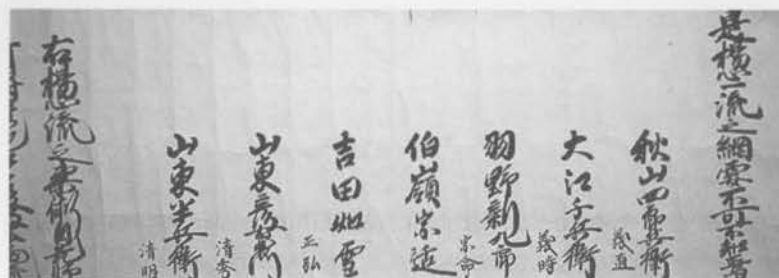 是楊心一流之綱要不可不知焉
秋山四郎兵衛
義直
大江千兵衛
義時
羽野新九郎
宗命
伯嶺宗
吉田如雪
正弘
山東彦右衛門
清秀
山東半兵衛
清明
右楊心流之柔術